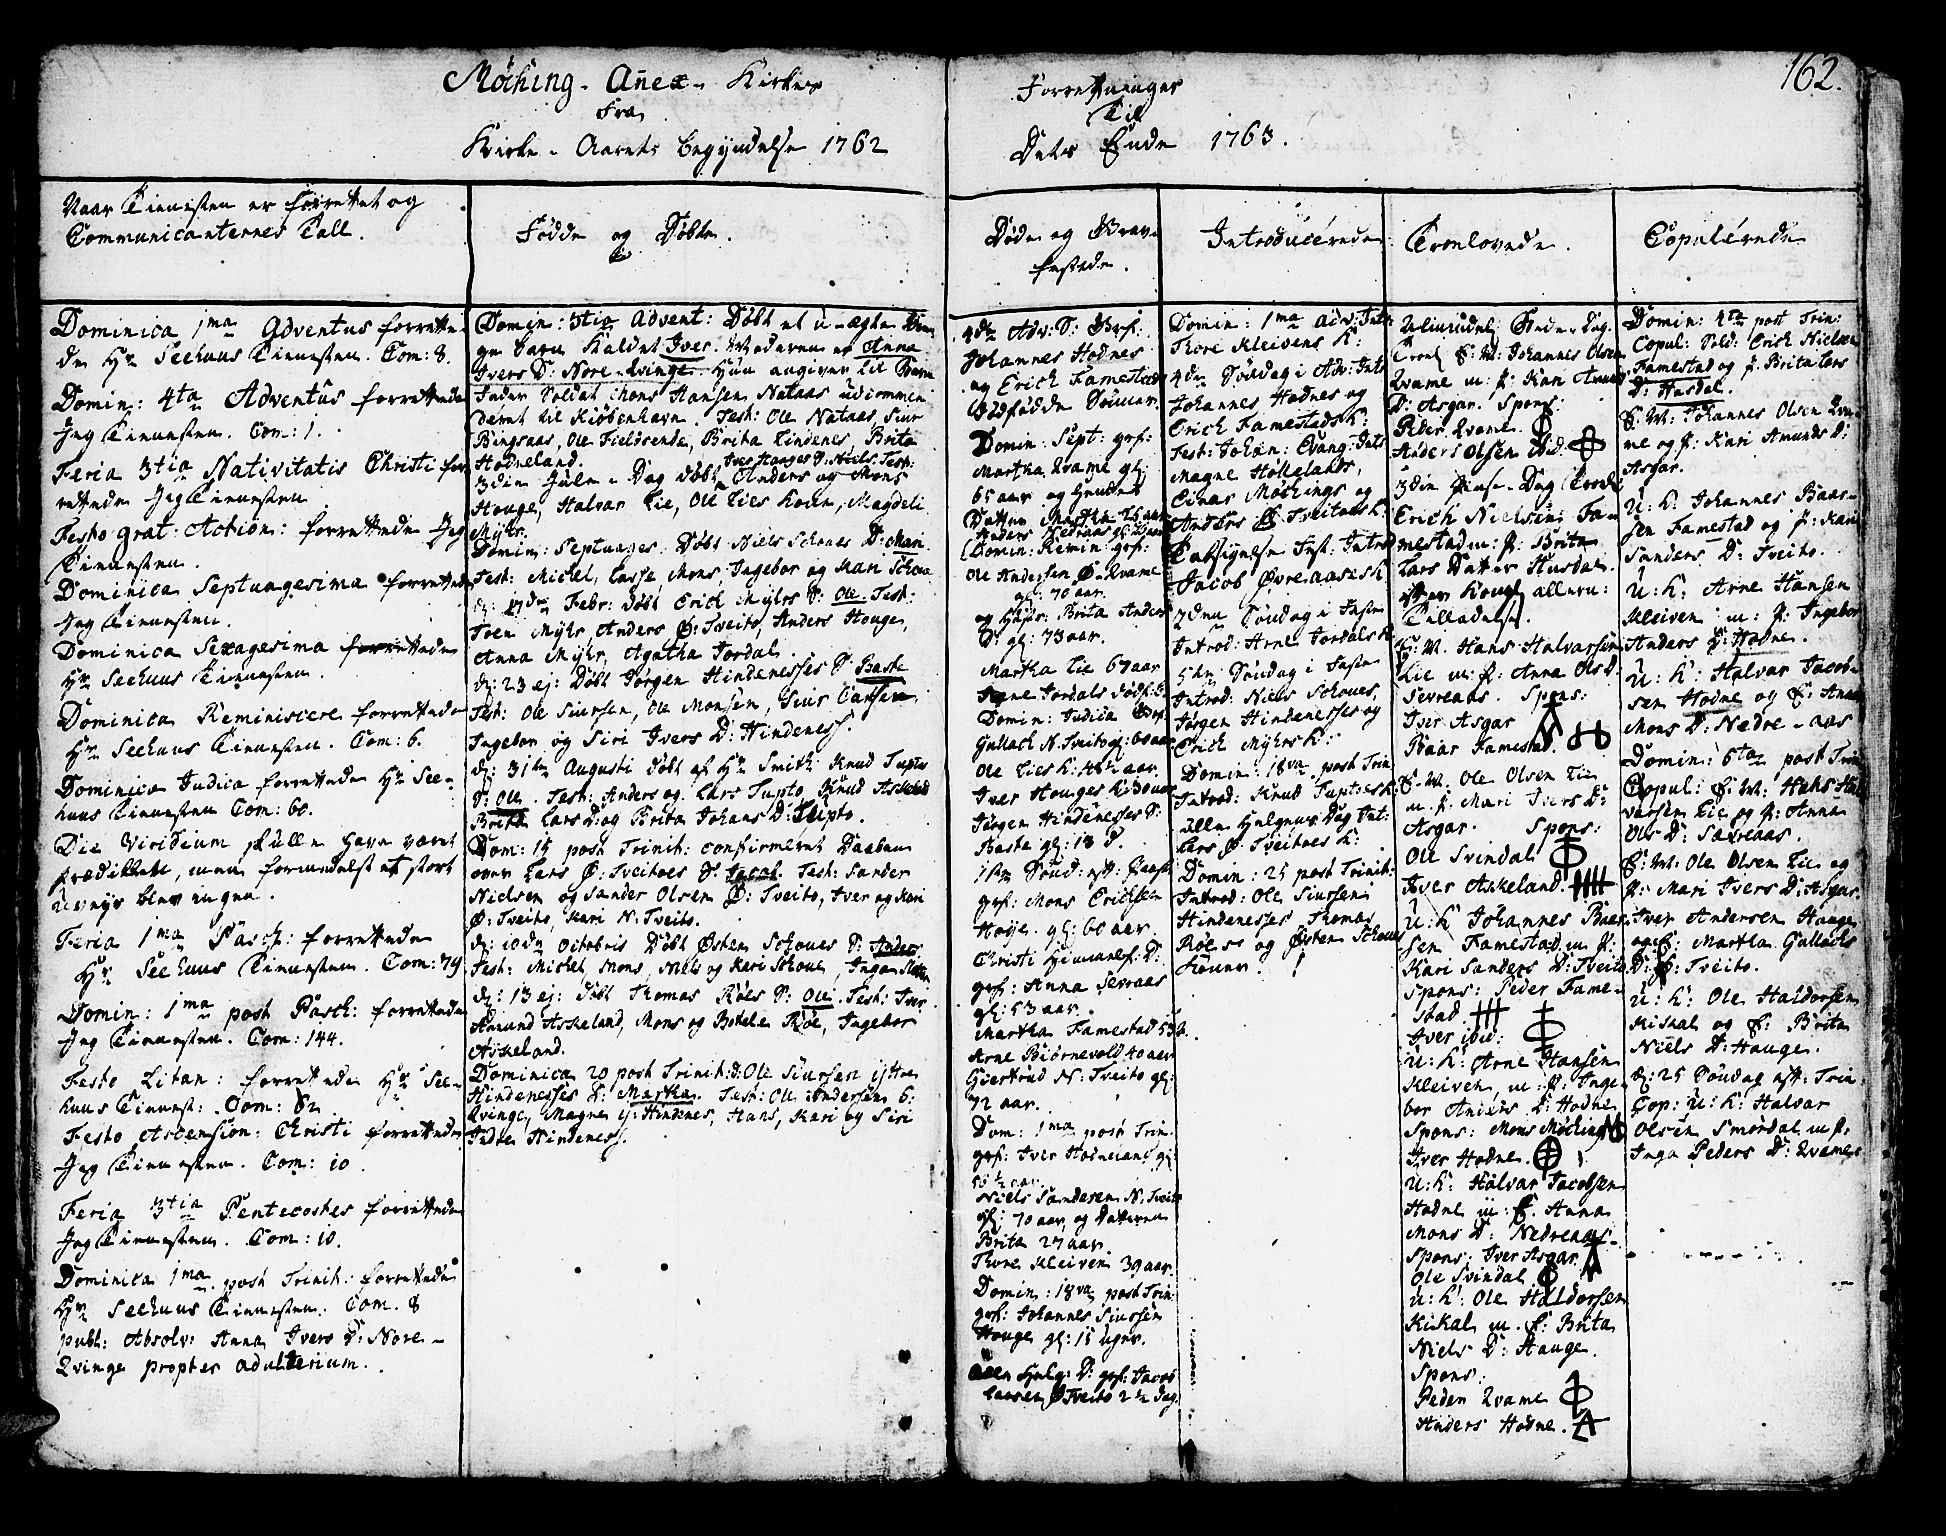 162.
Møching - Añex - Kirkes Forretninger
Fra Til
Kirke - Aarets begyndelse 1762 Dets Ende 1763.
Naar Tienisten er forrettet og
Communicanternes Tall.
Dominica 1ma Adventus forrette-
de Hr Seehuus Tienesten. Com: 8.
Domin: 4ta Adventus forrettede
Jeg Tienesten. Com: 1.
Feria 3tia Nativitatis Christi for-
rettede Jeg Tienesten
Festo grat: Action: forrettede Jeg
Tienesten.
Dominica Septuagesima forrettede
Jeg Tienesten.
Dominica Sexagesima forrettede
Hr Seehuus Tienesten.
Dominica Reminiscere forrettede
Hr Seehuus Tienesten. Com: 6.
Dominica Judica forrettede Hr See-
huus Tienesten Com: 60.
Die Viridium skulle have været
prædikket, men formedelst et stort
Uveyr blev ingen.
Feria 1ma Pasch: forrettede
Hr Seehuus Tienesten. Com: 79
Domin: 1ma post Pasch: forrettede
Jeg Tienesten. Com: 144.
Festo Litan: forrettede Hr See-
huus Tienest: Com: 82
Festo Ascension: Christi forrettede
Jeg Tienesten. Com: 10.
Feria 3tia Pentecostes forrettede
Jeg Tienesten. Com: 10.
Dominica 1ma post Trinit: forrettede
Hr Seehuus Tienesten. Com. 8
publ: Absolv: Anna Ivers D: Nore-
Qvinge propter adulterium.
Fødde og Døbte.
Domin: 3tia Advent: Døbt et u-ægte
Barn kaldet Iver. Moderen er Anna
Ivers D: Nore-Qvinge. Hun angiver til Barne
Fader Soldat Mons Hansen Nataas udcommen-
deret til Kiøbenhavn. Test: Ole Nataas, Siur
Bingsaas, Ole Fieldsende, Brita Tindenes, Brita
Hodneland.
3die Jule-Dag døbt Iver Houges S: Niels. Test: Anders og Mons
Houge, Halvar Lie, Ole Lies Kone, Magdeli
Myhr.
Domin: Septuages: Døbt Niels Schoues D: Mari.
Test: Michel, Lasse, Mons, Ingebor og Kari Schoue
d: 17de Febr: døbt Erich Myhrs S: Ole. Test:
Toen Myhr, Anders Ø: Tveito, Anders Houge,
Anna Myhr, Agatha Jordal.
d: 23 ej: Døbt Jørgen Hindenesses S: Baste
Test: Ole Siursen, Ole Monsen, Siur Larsen,
Ingebor og Siri Ivers D: Hindenes.
d: 31te Augusti døbt af Hr Smith Knud Tuptes
S: Ole. Test: Anders og Lars Tupto, Knud Askeland
Brita Lars D: og Brita Johans D: Tupto.
Dom: 15 post Trinit: confirmeret Daaben
over Lars Ø: Tveitoes S: Jacob. Test: Sander
Nielsen og Sander Olsen Ø: Tveito, Iver og Kari
Ø: Tveito, Kari N: Tveito.
d: 10de Octobris Døbt Østen Schoues S: Anders
Test: Michel, Mons, Niels og Kari Schoue, Inga
d: 13 ej: døbt Thomas Røes S: Ole. Test: Iver,
Amund Askeland, Mons og Botele Røe, Ingebor
Askeland.
Dominica 20 post Trinit: d: Ole Siursen
Hindenesses D: Martha. Test: Ole Andersen
Qvinge, Magne Hindenes, Hans, Kari og Siri
Indre Hindenes.
Døde og Grav-
festede.
4de Adv: S: Grf:
Johannes Hodnes
og Erich Famestads
dødfødde Sønner.
Domin: Sept: grf:
Martha Qvame gl:
65 aar og hendes
Datter Martha 25 aar
Domin: Remin: grf:
Ole Andersen Ø-Qvame
gl: 70 aar.
og Brita Anders
D: gl: 73 aar.
Martha Lie 67 aar
Arne Jordals dødf: S.
Domin: Judica Grf:
Gullach N: Tveito gl: 60 aar
Ole Lies K: 46½ aar.
Iver Houges K:
Jørgen Hindenesses S:
Baste gl: 18 D.
1ste Sønd: eft: Paask
grf: Mons Erichsen
Høye. gl: 60 aar.
Christi Himmelf: D:
grf: Anna Sevraas
gl: 53 aar.
Martha Famestad 53
Arne Biørnevold 40 aar
Giertrud N: Tveito gl:
72 aar.
Dom: 1ma post Trin:
grf: Iver Hodneland gl:
55½ aar.
Niels Sandersen N: Tveito
gl: 70 aar og Datteren
Brita 27 aar
Thore Kleiven 39 aar.
Domin: 18va post Trin:
grf: Johannes Siursen
Houge gl: 15 uger.
Allehelg: D: grf: Jacob
Larsen Ø Tveito 2½ Dag.
Introducerede
Domin: 1ma Adv: Intr:
Thore Kleivens K:
4de Søndag i Adv: Intr
Johannes Hodnes og
Erich Famestads K:
Fest: Johan: Evang: Intr
Magne Hollelands,
Einar Møchings og
Anders Ø Tveitoes K:
Taksigelse Fest: Introd
Jacob Øvreaases K
2den Søndag i Faste
Introd: Arne Jordals K
5te Søndag i Faste
Introd: Niels Schoues,
Jørgen Hindenesses og
Erich Myhrs K:
Domin: 18va post Trin:
Introd: Knud Tuptes K:
Alle Helgens Dag Int:
Lars Ø: Tveitoes K:
Domin: 25 post Trinit:
Introd: Ole Siursens
Hindenesses Thomas
Røes og Østen Schoues
Koner.
Troelovede.
Trol. E: M: Johannes Olsen
Qvame m: P: Kari Amunds
D: Asgar. Spons:
Peder Qvame.
Anders Olsen ibid.
3die Pintse-Dag Trol:
Erich Nielsen Fa-
mestad m: P: Brita
Lars Datter Husdal.
efter Kongl allern:
Tilladelse.
E: M. Hans Halvarsen
Lie m: P: Anna Ols D:
Sevreaas. Spons:
Iver Asgar
Baar Famestad.
E. M. Ole Olsen Lie
m. P: Mari Ivers D:
Asgar. Spons:
Ole Svindal
Iver Askeland.
U: K: Johannes Baar-
sen Famestad m: P:
Kari Sanders D: Tveito
Spons: Peder Fame-
stad
Iver ibid:
U: K: Arne Hansen
Kleiven m: P: Inge-
bor Anders D: Hodne
Spons: Mons Møching
Iver Hodne.
U: K: Halvar Jacobsen
Hodne m: E. Anna
Mons D: Nedreaas-
Spons: Iver Asgar
Ole Svindal
U: K: Ole Haldorsen
Kikal m. E: Brita
Niels D: Hauge.
Spons:
Peder Qvame
Anders Hodne.
Copulérede
Domin: 4ta post Trin:
Copul: Sold: Erich Nielsen
Famestad og P: Brita Lars
D: Husdal.
E: M: Johannes Olsen Qva-
me og P: Kari Amunds D:
Asgar.
U: K: Johannes Baar-
sen Famestad og P: Kari
Sanders D: Tveito.
U: K: Arne Hansen
Kleiven m: P: Ingebor
Anders D: Hodne.
U: K: Halvar Jacob-
sen Hodne og E: Anna
Mons D: Nedre-aas
Domin: 6ta post Trin
Copul: E: M: Hans Hal-
varsen Lie og P: Anna
Ols D: Sævreaas.
E: M: Ole Olsen Lie og
P: Mari Ivers D: Asgar.
Iver Andersen Houge
og E: Martha Gullachs
D: Ø: Tveito.
U: K: Ole Haldorsen
Kikal og E: Brita
Niels D: Hauge.
d: 25 Søndag eft: Trin
Cop: U: K: Halvar
Olsen Smørdal m P:
Inga Peders D: Qvame